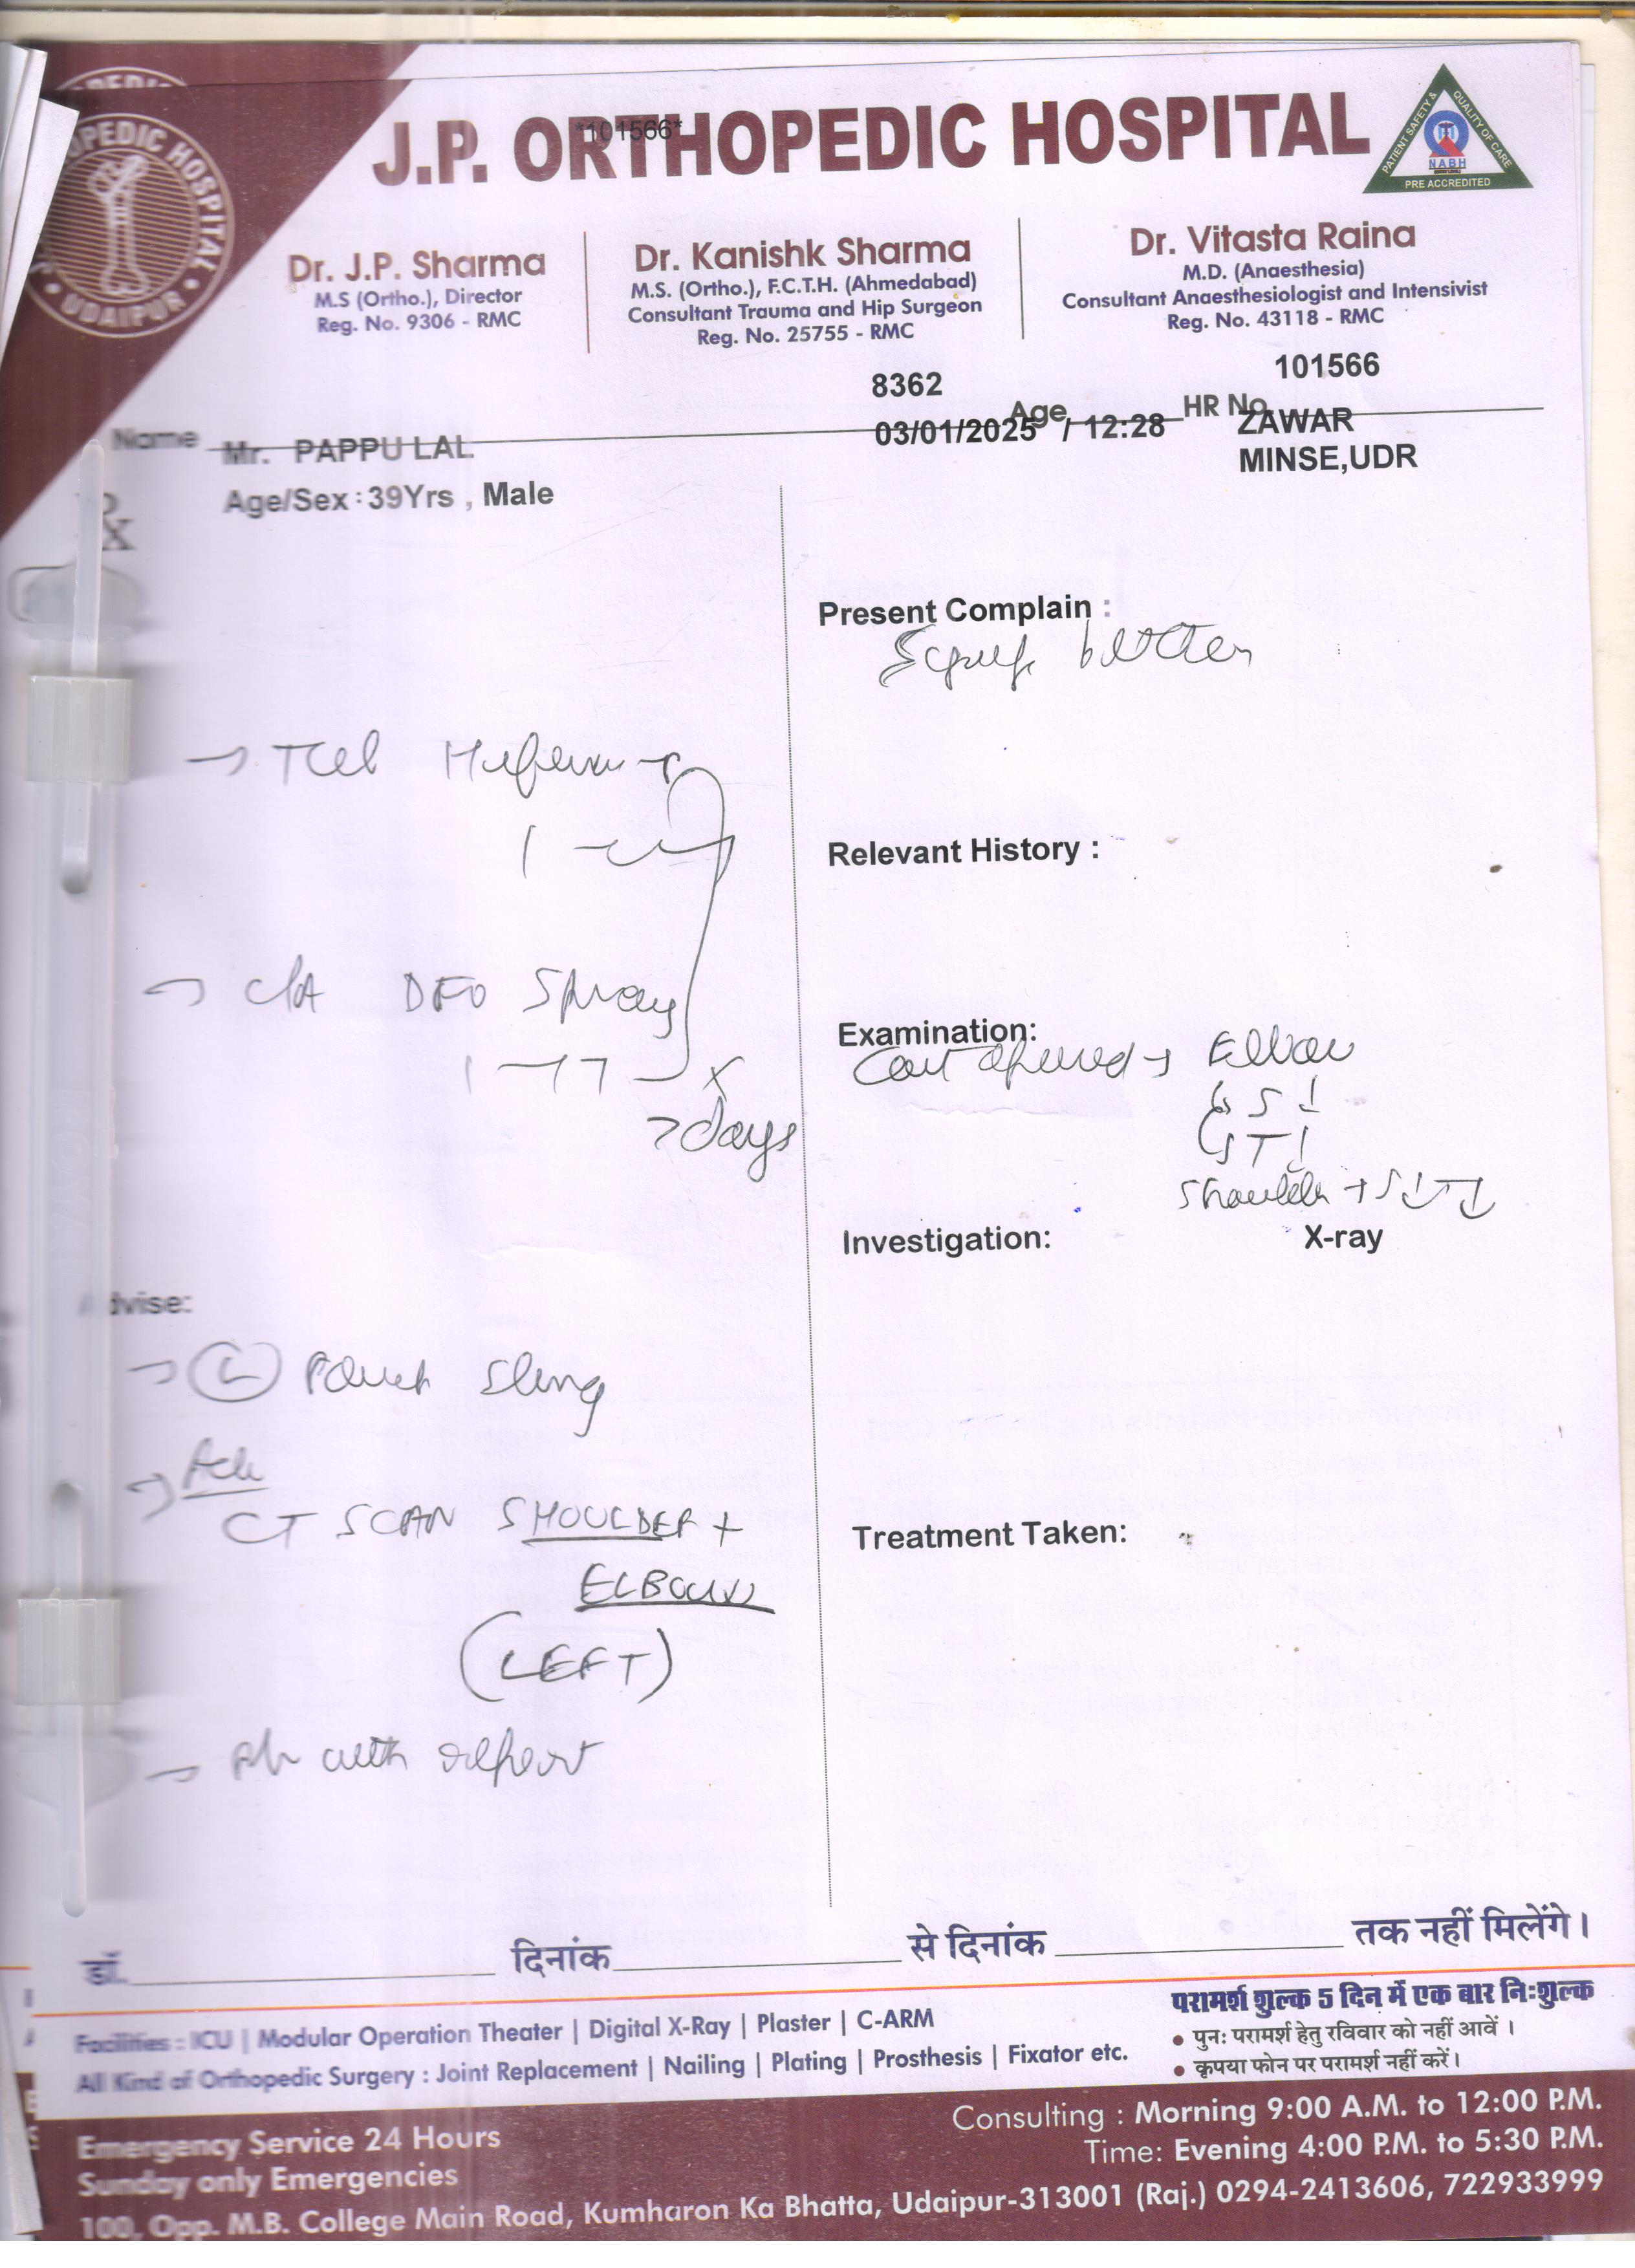 J.P. ORTHOPEDIC HOSPITAL
*101566*
PATIENT SAFETY & QUALITY OF CARE
NABH
PRE ACCREDITED
OPEDIC HOSPITAL
UDAIPUR
Dr. J.P. Sharma
M.S (Ortho.), Director
Reg. No. 9306 - RMC
Dr. Kanishk Sharma
M.S. (Ortho.), F.C.T.H. (Ahmedabad)
Consultant Trauma and Hip Surgeon
Reg. No. 25755 - RMC
Dr. Vitasta Raina
M.D. (Anaesthesia)
Consultant Anaesthesiologist and Intensivist
Reg. No. 43118 - RMC
8362
101566
Name Mr. PAPPU LAL
Age
03/01/2025 / 12:28
HR No.
ZAWAR
MINSE,UDR
Age/Sex : 39Yrs , Male
Present Complain :
better
Relevant History :
DFO Spray
Examination:
Elbow
7 days
shoulder
Investigation: X-ray
Advise:
L Pouch Sling
CT SCAN SHOULDER +
ELBOW
(LEFT)
with report
Treatment Taken:
डॉ. दिनांक से दिनांक तक नहीं मिलेंगे।
Facilities : ICU | Modular Operation Theater | Digital X-Ray | Plaster | C-ARM
All Kind of Orthopedic Surgery : Joint Replacement | Nailing | Plating | Prosthesis | Fixator etc.
परामर्श शुल्क 5 दिन में एक बार निःशुल्क
• पुनः परामर्श हेतु रविवार को नहीं आवें ।
• कृपया फोन पर परामर्श नहीं करें।
Emergency Service 24 Hours
Sunday only Emergencies
Consulting : Morning 9:00 A.M. to 12:00 P.M.
Time: Evening 4:00 P.M. to 5:30 P.M.
100, Opp. M.B. College Main Road, Kumharon Ka Bhatta, Udaipur-313001 (Raj.) 0294-2413606, 722933999